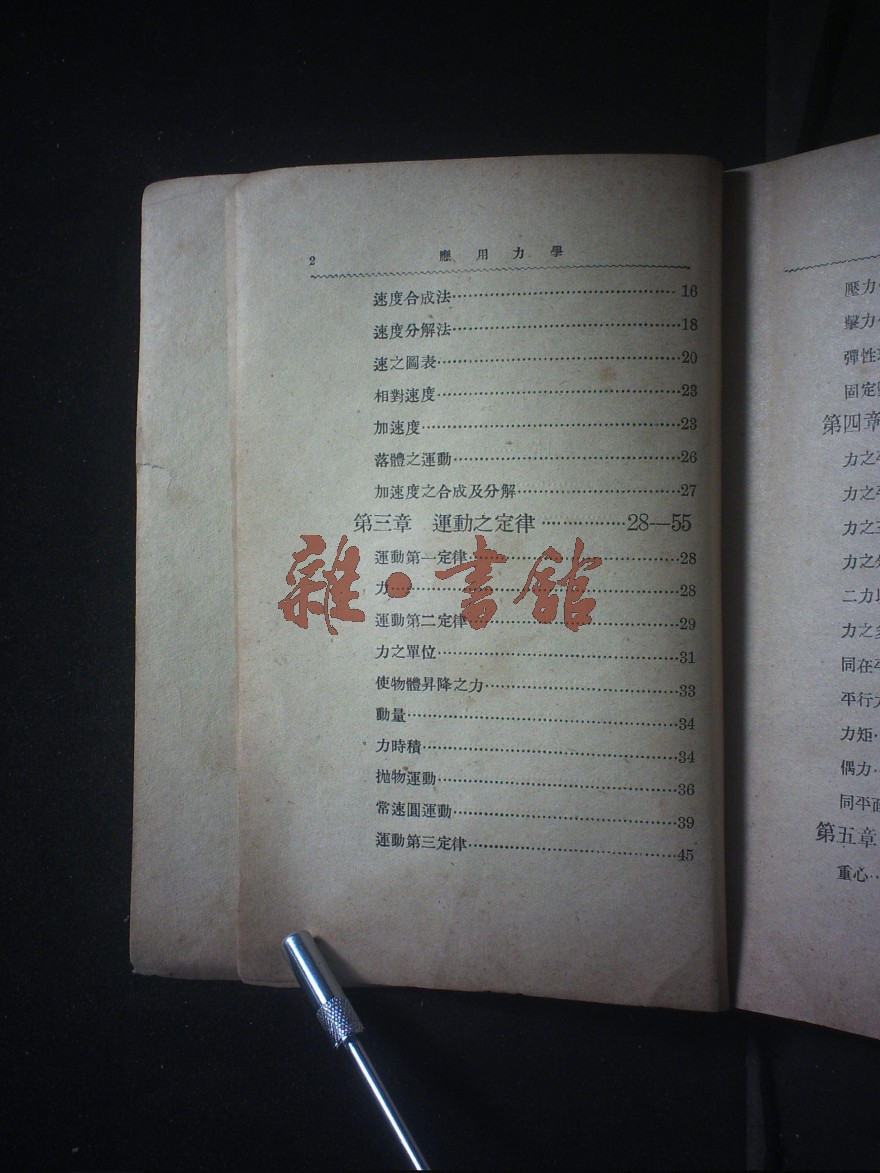 2 應用力學
速度合成法……16
速度分解法……18
速之圖表……20
相對速度……23
加速度……23
落體之運動……26
加速度之合成及分解……27
第三章 運動之定律……28—55
運動第一定律……28
力……28
運動第二定律……29
力之單位……31
使物體昇降之力……33
動量……34
力時積……34
拋物運動……36
常速圓運動……39
運動第三定律……45
雜·書館
壓力
擊力
彈性
固定
第四章
力之
力之
力之
力之
二力
力之
同在
平行
力矩
偶力
同平面
第五章
重心